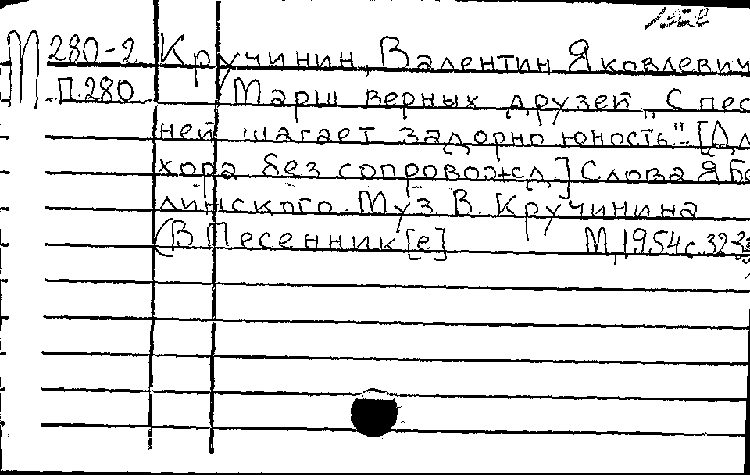 М 280-2 Кручинин, Валентин Яковлевич
П.280 Марш верных друзей "С пес
ней шагает задорно юность". [Дл
хора без сопровожд.] Слова Я Бе
линского. Муз В. Кручинина
(В Песенник[е] М, 1954 с. 32-33